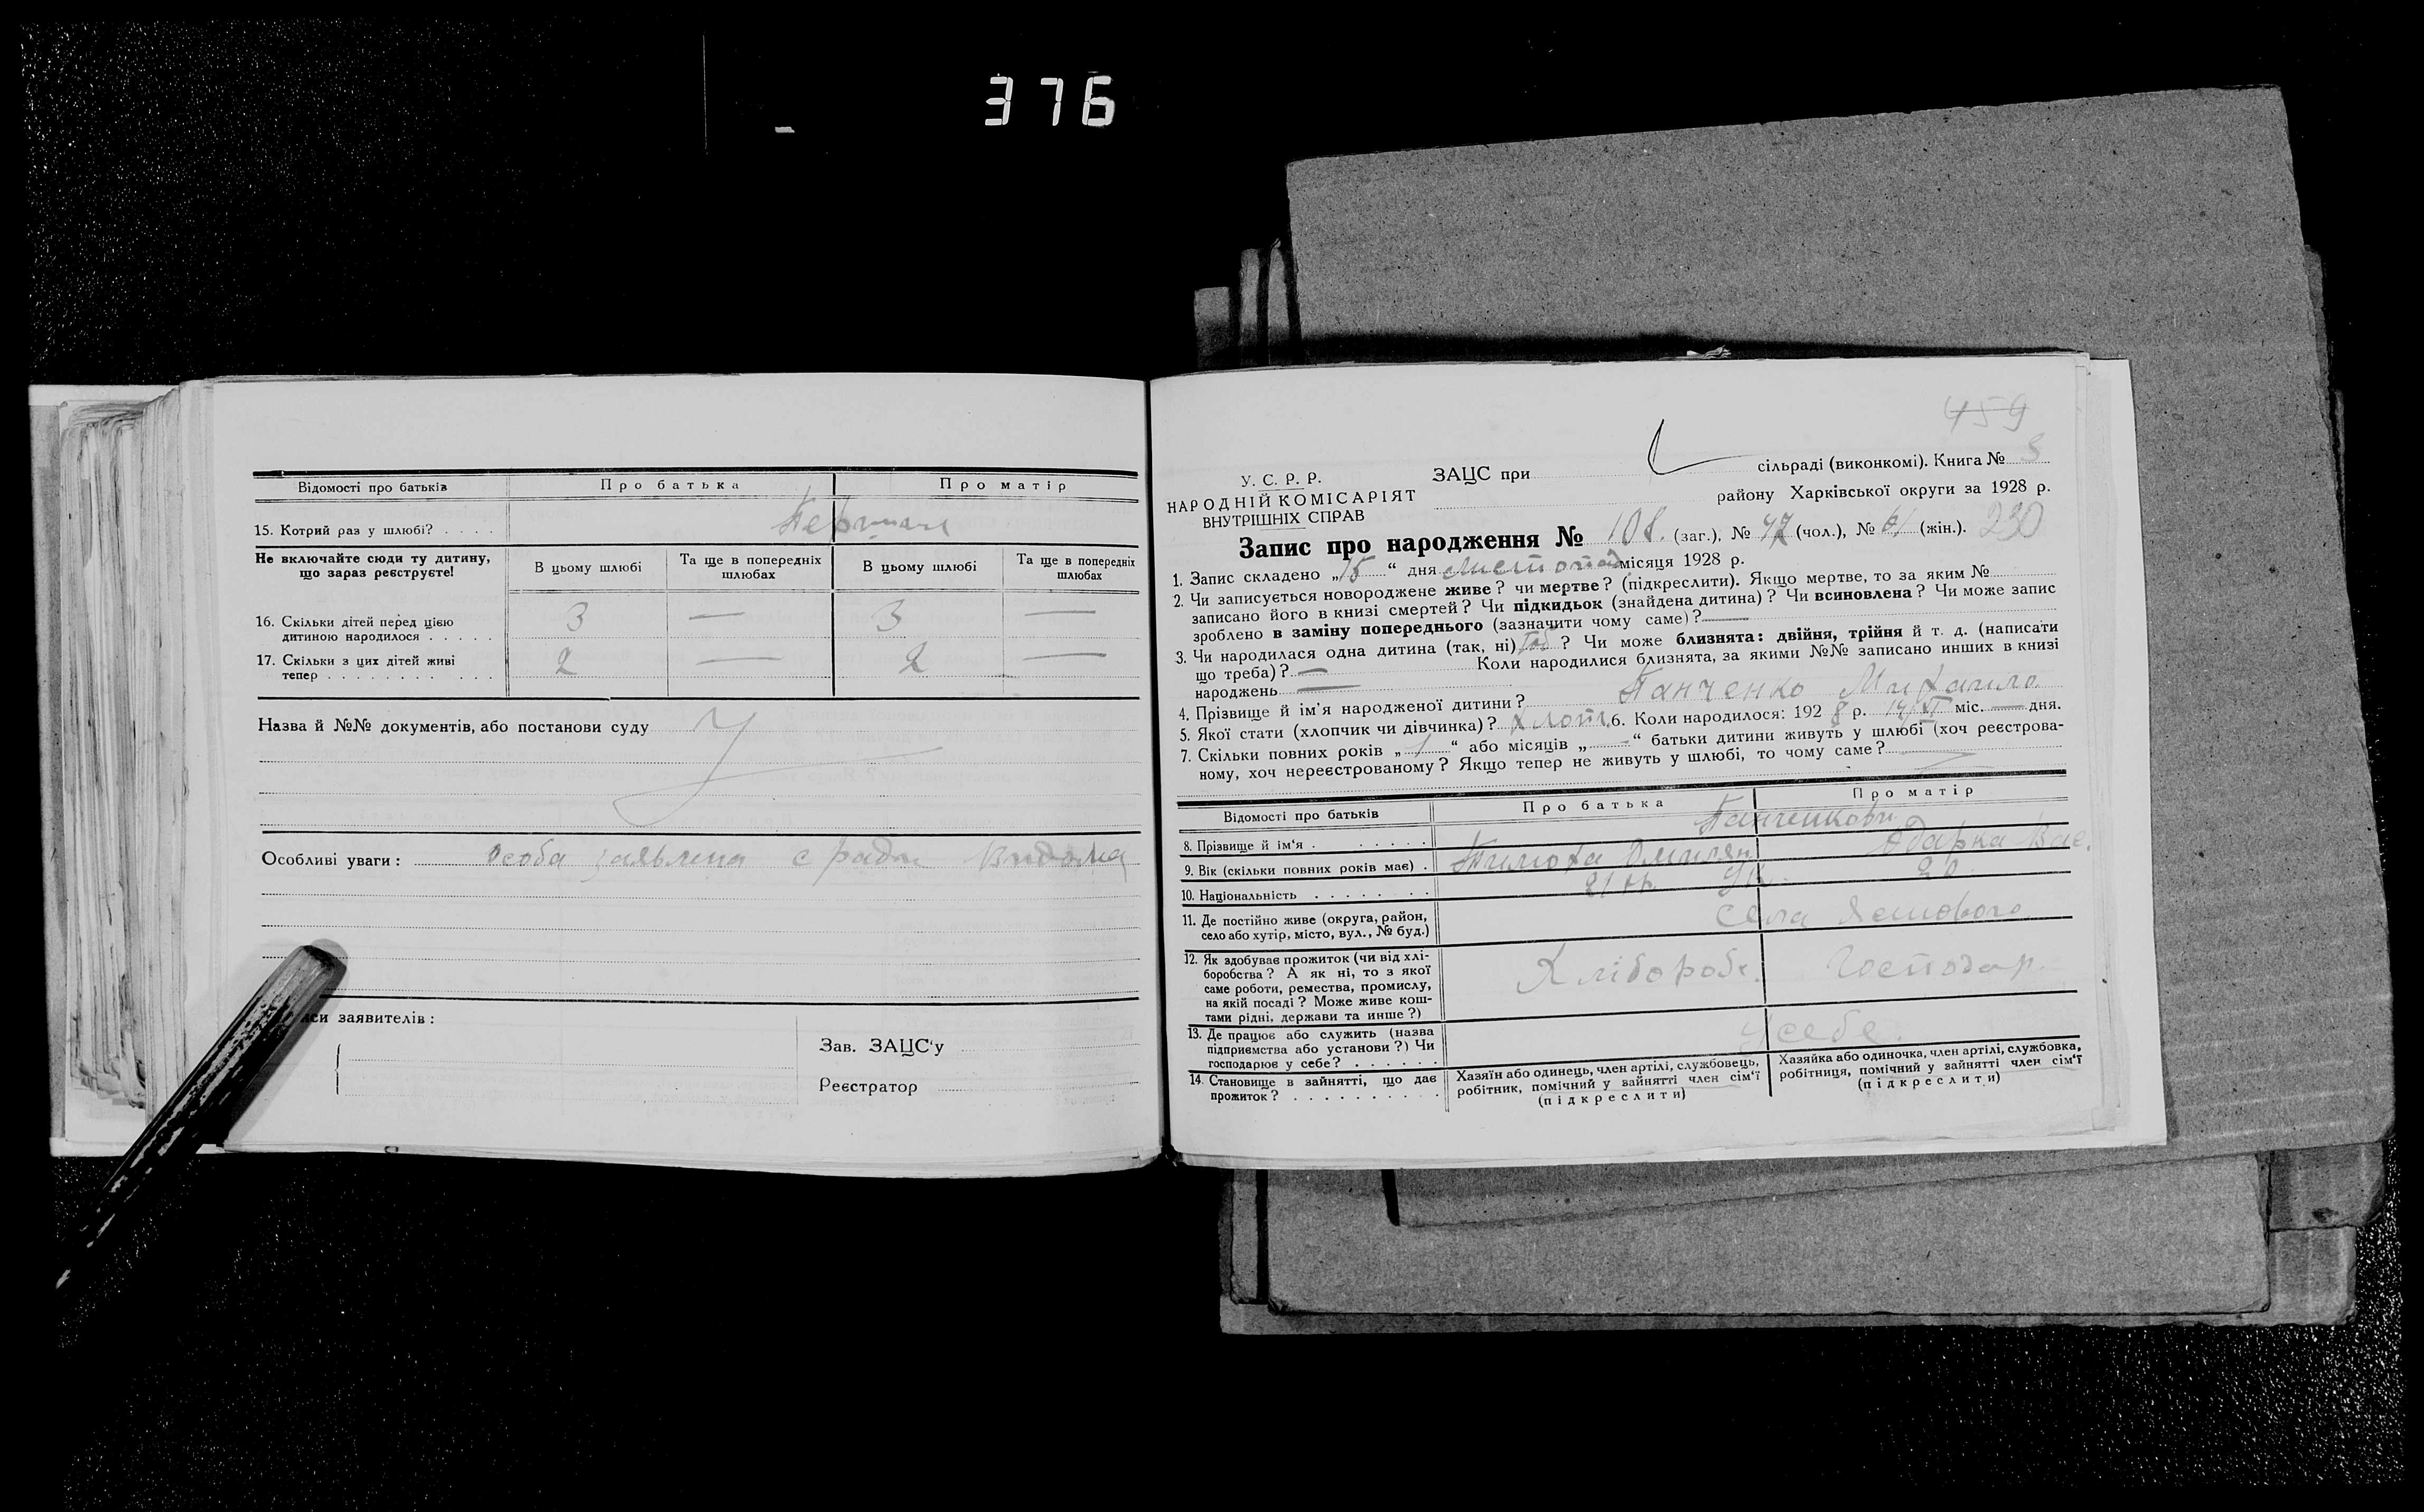 376
Відомості про батьків Про батька Про матір
15. Котрий раз у шлюбі? . . . .
Не включайте сюди ту дитину, що зараз реєструєте!
В цьому шлюбі Та ще в попередніх шлюбах В цьому шлюбі Та ще в попередніх шлюбах
16. Скільки дітей перед цією
дитиною народилося . . . . . 3 — 3 —
17. Скільки з цих дітей живі
тепер . . . . . . . . . . . 2 — 2 —
Назва й №№ документів, або постанови суду
Особливі уваги: особа заявлена с ради Видома
заявителів:
Зав. ЗАЦС'у
Реєстратор
459
У. С. Р. Р.
НАРОДНІЙ КОМІСАРІЯТ
ВНУТРІШНІХ СПРАВ
ЗАЦС при сільраді (виконкомі). Книга № 3
району Харківської округи за 1928 р.
Запис про народження № 108. (заг.), № 47 (чол.), № 61 (жін.). 230
1. Запис складено „15“ дня Листопад місяця 1928 р.
2. Чи записується новороджене живе? чи мертве? (підкреслити). Якщо мертве, то за яким №
записано його в книзі смертей? Чи підкидьок (знайдена дитина)? Чи всиновлена? Чи може запис
зроблено в заміну попереднього (зазначити чому саме)? —
3. Чи народилася одна дитина (так, ні) ? Чи може близнята: двійня, трійня й т. д. (написати
що треба)? — Коли народилися близнята, за якими №№ записано инших в книзі
народжень —
4. Прізвище й ім'я народженої дитини? Панченко Михаило
5. Якої стати (хлопчик чи дівчинка)? хлопч. 6. Коли народилося: 1928 р. 14/XI міс. — дня.
7. Скільки повних років „1“ або місяців „-“ батьки дитини живуть у шлюбі (хоч реєстрова-
ному, хоч нереєстрованому? Якщо тепер не живуть у шлюбі, то чому саме?
Відомості про батьків Про батька Про матір
Панченкови
8. Прізвище й ім'я . . . . . . Тимоха Омилян Одарка Вас.
9. Вік (скільки повних років має) . 21 20
10. Національність . . . . . . . Ук.
11. Де постійно живе (округа, район,
село або хутір, місто, вул., № буд.) села
12. Як здобуває прожиток (чи від хлі-
боробства? А як ні, то з якої
саме роботи, ремества, промислу,
на якій посаді? Може живе кош-
тами рідні, держави та инше?) Хлібороб. Господар.
13. Де працює або служить (назва
підприємства або установи?) Чи
господарює у себе? . . . . . у себе.
14. Становище в зайнятті, що дає
прожиток? . . . . . . . . . .
Хазяїн або одинець, член артілі, службовець,
робітник, помічний у зайнятті член сім'ї
(підкреслити)
Хазяйка або одиночка, член артілі, службовка,
робітниця, помічний у зайнятті член сім'ї
(підкреслити)